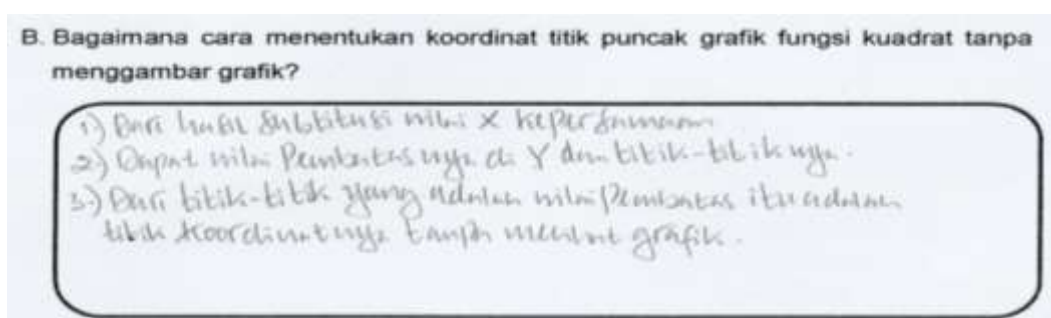 B. Bagaimana cara menentukan koordinat titik puncak grafik fungsi kuadrat tanpa
menggambar grafik?
1.) Dari hasil Substitusi nilai X kepersamaan
2.) Dapat nilai Pembatas nya di Y dan titik-titik nya.
3.) Dari titik-titik yang adalah nilai Pembatas itu adalah
titik Koordinat nya tanpa melihat grafik.